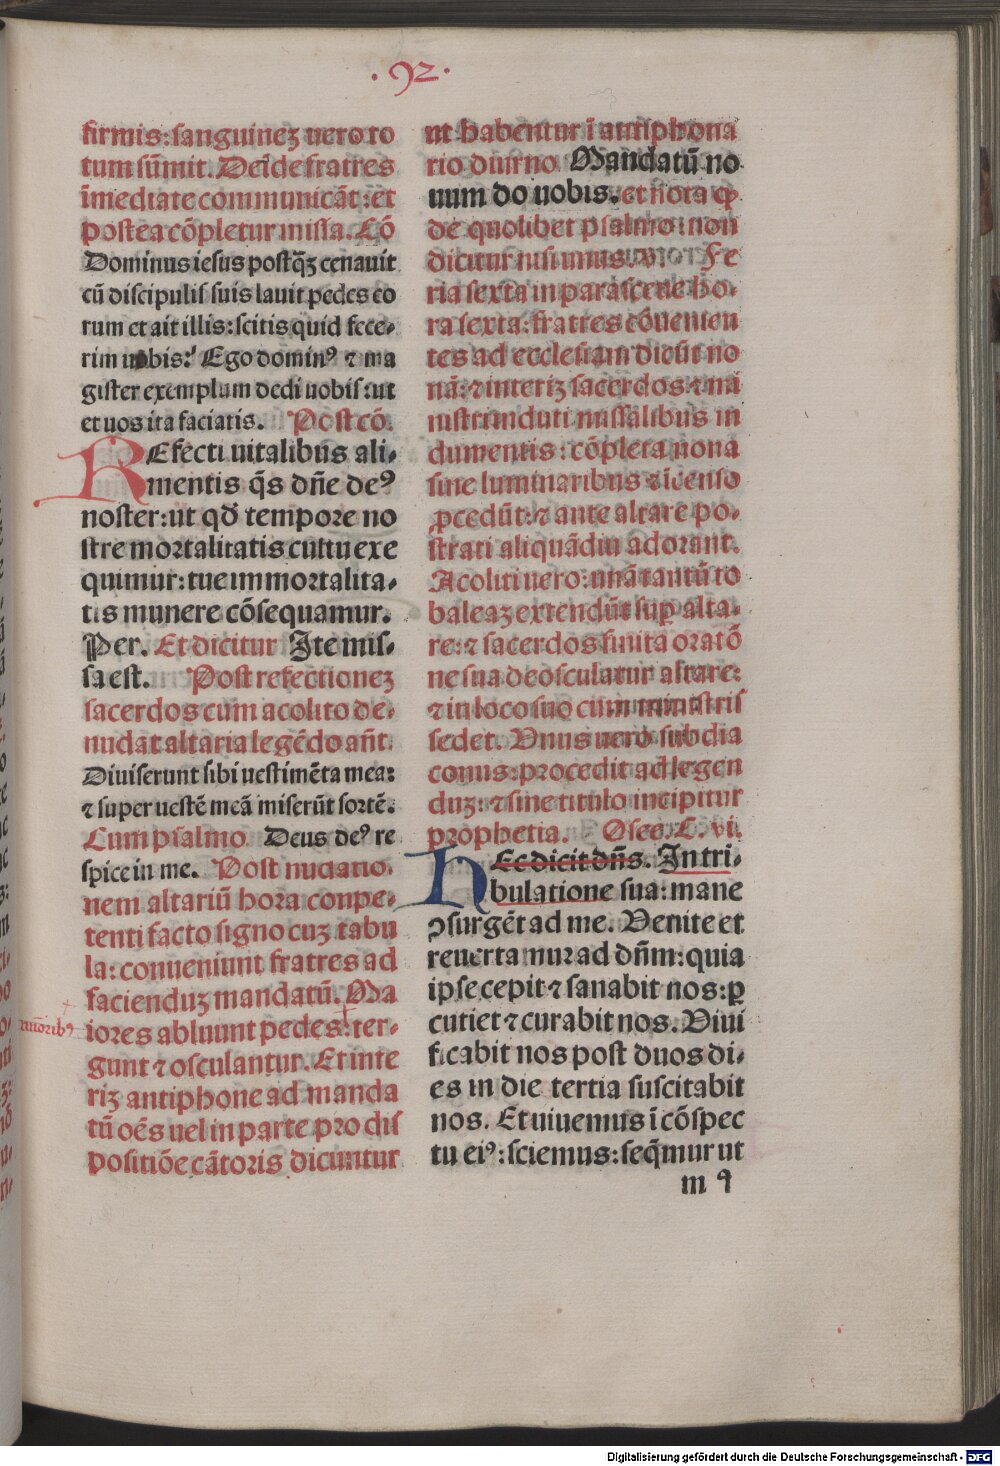 .92.
firmis: sanguineꝫ vero to
tum sūmit. Deīde fratres
īmediate communicāt: et
postea cōpletur missa. Cō
Dominus iesus postq̄ꝫ cenauit
cū discipulis suis lauit pedes eo
rum et ait illis: scitis quid fece-
rim uobis? Ego dominꝰ ⁊ ma
gister exemplum dedi uobis: ut
et uos ita faciatis. Post cō.
REfecti uitalibus ali-
mentis q̄s dn̄e deꝰ
noster: ut qd̄ tempore no
stre mortalitatis cultu exe
quimur: tue immortalita-
tis munere cōsequamur.
Per. Et dicitur Ite mis-
sa est. Post refectioneꝫ
sacerdos cum acolito de-
nudat altaria legēdo an̄t.
Diuiserunt sibi uestimēta mea:
⁊ super uestē meā miserūt sortē.
Cum psalmo Deus deꝰ re
spice in me. Post nudatio-
nem altariū hora conpe-
tenti facto signo cuꝫ tabu
la: conueniunt fratres ad
facienduꝫ mandatū. Ma
iores abluunt pedes: ter-
gunt ⁊ osculantur. Et inte
riꝫ antiphone ad manda
tū oēs uel in parte pro dis
positiōe cātoris dicuntur
ut habentur ī antiphona
rio diurno Mandatū no
uum do uobis. et nota ꝙ
de quolibet psalmo: non
dicitur nisi unus. v. Fe
ria sexta in parasceue ho-
ra sexta: fratres cōuenien
tes ad ecclesiam dicūt no
nā: ⁊ interiꝫ sacerdos ⁊ mi
nistri induti missalibus in
dumentis: cōpleta nona
sine luminaribus ⁊ īcenso
ꝓcedūt: ⁊ ante altare po-
strati aliquādiu adorant.
Acoliti uero: unā tantū to
baleaꝫ extendūt suꝑ alta-
re: ⁊ sacerdos finita oratō
ne sua deosculatur altare:
⁊ in loco suo cum ministris
sedet. Vnus uero subdia
conus: procedit ad legen
duꝫ: ⁊ sine titulo incipitur
prophetia. Osee. C. vi.
HEc dicit dn̄s. In tri-
bulatione sua: mane
ꝯsurgēt ad me. Venite et
reuertamur ad dn̄m: quia
ipse cepit ⁊ sanabit nos: ꝑ
cutiet ⁊ curabit nos. Viui
ficabit nos post duos di-
es in die tertia suscitabit
nos. Et uiuemus ī cōspec
tu eiꝰ: sciemus: seq̄mur ut
m
Digitalisierung gefördert durch die Deutsche Forschungsgemeinschaft - DFG